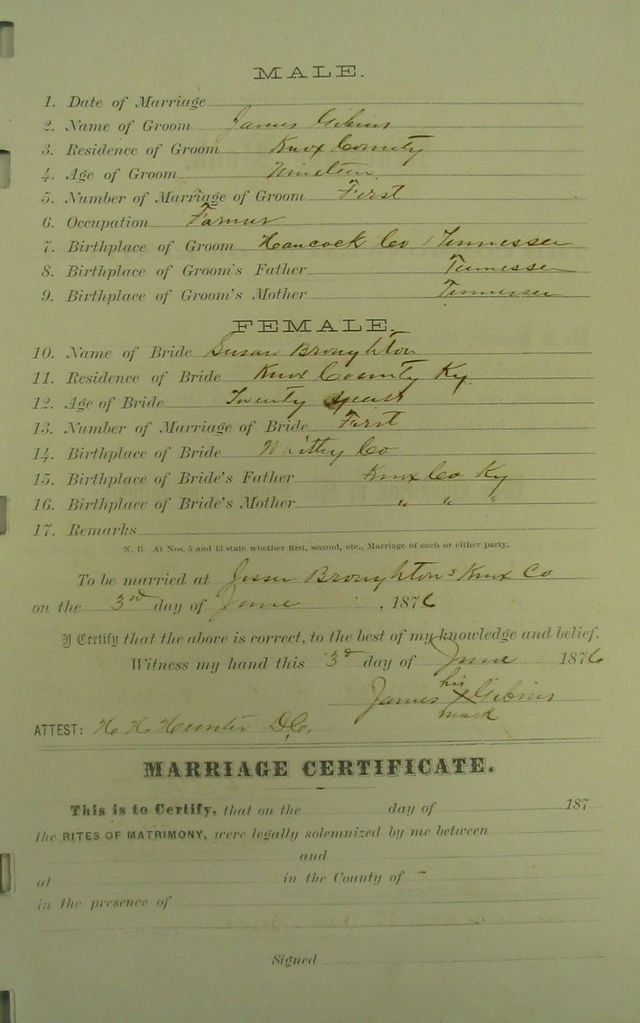 MALE.
1. Date of Marriage
2. Name of Groom James Gibins
3. Residence of Groom Knox County
4. Age of Groom Nineteen
5. Number of Marriage of Groom First
6. Occupation Farmer
7. Birthplace of Groom Hancock Co Tennessee
8. Birthplace of Groom's Father Tennessee
9. Birthplace of Groom's Mother Tennessee
FEMALE.
10. Name of Bride Susan Broughton
11. Residence of Bride Knox County Ky.
12. Age of Bride Twenty years
13. Number of Marriage of Bride First
14. Birthplace of Bride Whitley Co
15. Birthplace of Bride's Father Knox Co Ky
16. Birthplace of Bride's Mother " " "
17. Remarks
N. B. At Nos. 5 and 13 state whether first, second, etc., Marriage of each or either party.
To be married at Jesse Broughton's Knox Co
on the 3rd day of June , 1876
I Certify that the above is correct, to the best of my knowledge and belief.
Witness my hand this 3d day of June 1876
his
James x Gibins
mark
ATTEST: H. H. Hunter D.C.
MARRIAGE CERTIFICATE.
This is to Certify, that on the day of 187
the RITES OF MATRIMONY, were legally solemnized by me between
and
at in the County of
in the presence of
Signed